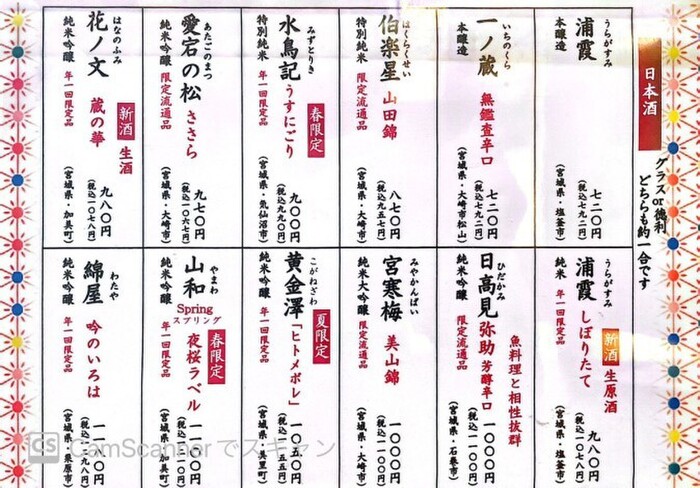 日本酒
グラスor徳利
どちらも約一合です
うらがすみ
浦霞
本醸造
七二〇円
(税込七九二円)
(宮城県・塩釜市)
いちのくら
一ノ蔵
本醸造
無鑑査辛口
七二〇円
(税込七九二円)
(宮城県・大崎市松山)
はくらくせい
伯楽星
特別純米
山田錦
限定流通品
八七〇円
(税込九五七円)
(宮城県・大崎市)
みずとりき
水鳥記
特別純米
うすにごり
年一回限定品
春限定
九〇〇円
(税込九九〇円)
(宮城県・気仙沼市)
あたごのまつ
愛宕の松
純米吟醸
ささら
限定流通品
九七〇円
(税込一〇六七円)
(宮城県・大崎市)
はなのふみ
花ノ文
純米吟醸
年一回限定品
蔵の華
新酒
生酒
九八〇円
(税込一〇七八円)
(宮城県・加美町)
うらがすみ
浦霞
純米
しぼりたて
年一回限定品
新酒
生原酒
九八〇円
(税込一〇七八円)
(宮城県・塩釜市)
ひだかみ
日高見
純米吟醸
弥助
芳醇辛口
限定流通品
魚料理と相性抜群
一〇〇〇円
(税込一一〇〇円)
(宮城県・石巻市)
みやかんばい
宮寒梅
純米大吟醸
美山錦
限定流通品
一〇〇〇円
(税込一一〇〇円)
(宮城県・大崎市)
こがねざわ
黄金澤
純米吟醸
「ヒトメボレ」
年一回限定品
夏限定
一〇五〇円
(税込一一五五円)
(宮城県・美里町)
やまわ
山和
Spring
スプリング
純米吟醸
年一回限定品
春限定
夜桜ラベル
(宮城県・加美町)
わたや
綿屋
純米吟醸
吟のいろは
年一回限定品
(宮城県・栗原市)
CS CamScanner でスキャン